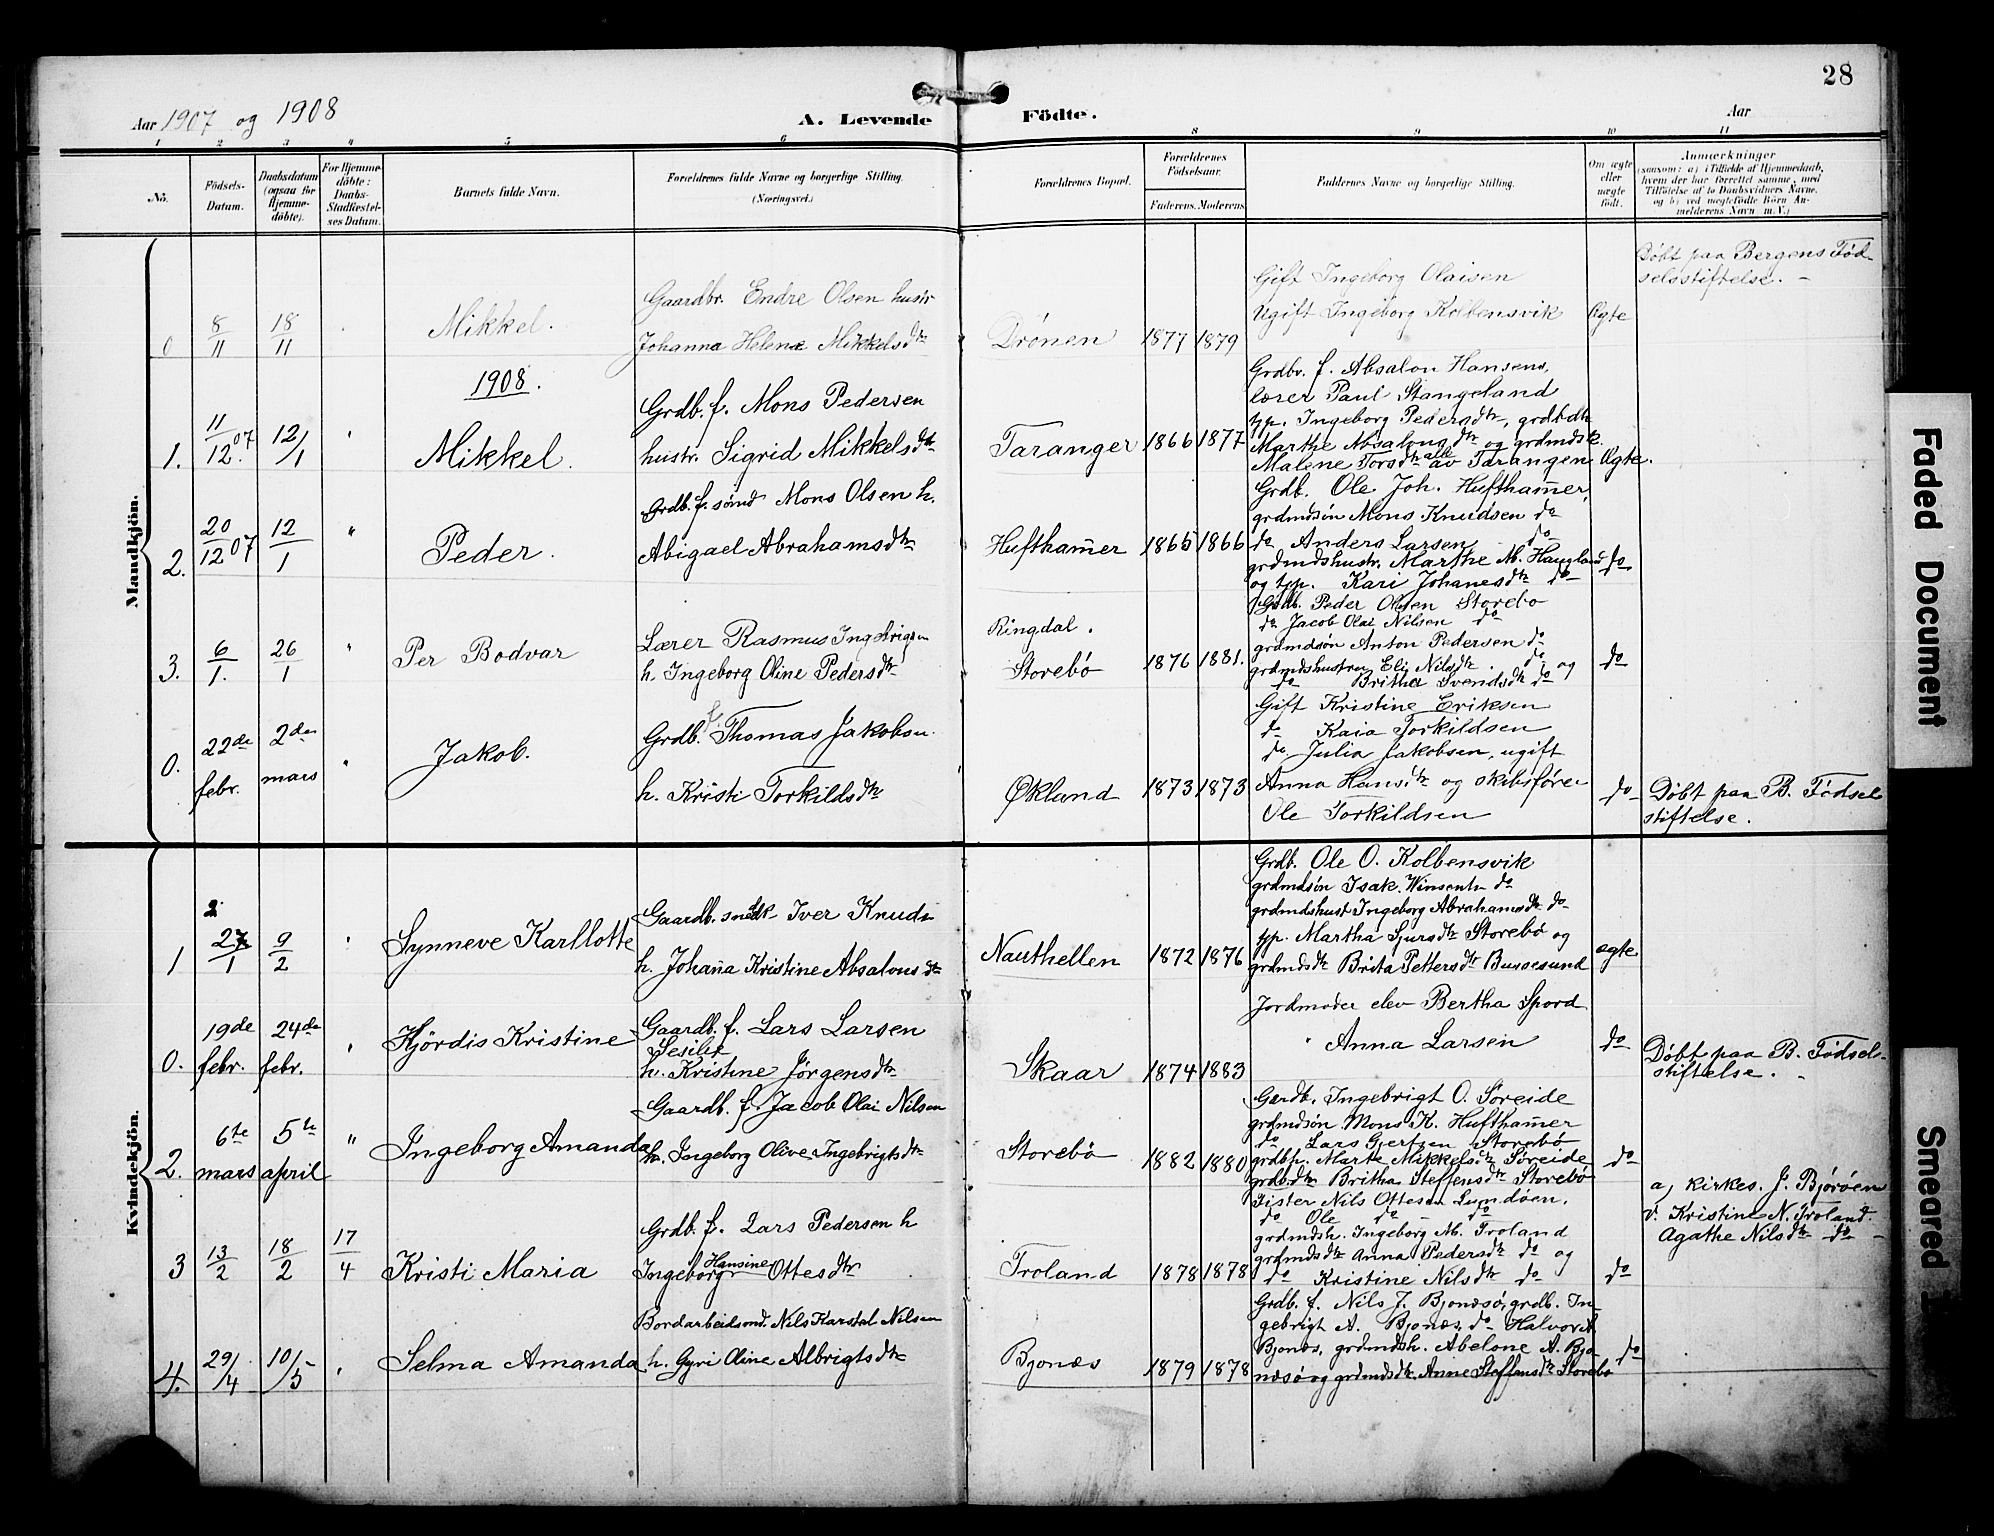 28
Aar 1907 og 1908
A. Levende Födte.
Aar
1 2 3 4 5 6 8 9 10 11
No.
Födsels-Datum.
Daabsdatum (ogsaa for Hjemme-döbte).
For Hjemme-döbte: Daabs-Stadfæstel-ses Datum.
Barnets fulde Navn.
Forældrenes fulde Navne og borgerlige Stilling. (Næringsvei.)
Forældrenes Bopæl.
Forældrenes Födselsaar.
Faderens. Moderens
Faddernes Navne og borgerlige Stilling.
Om ægte eller uægte født.
Anmærkninger
(saasom: a) i Tilfælde af Hjemmedaab, hvem der har forrettet samme, med Tilföielse af to Daabsvidners Navne, og b) ved uægtefödte Börn Anmelderens Navn m. V.)
Mandkjön.
0 8/11 18/11
Mikkel.
Gaardbr. Endre Olsen hustr
Johanna Helene Mikkelsdtr
Drönen 1877 1879
Gift Ingeborg Olaisen
Ugift Ingeborg Kolbensvik
Ægte
Döbt paa Bergens Fød-
selsstiftelse. -
1908.
1. 11/12 07 12/1
Mikkel.
Grdb. f. Mons Pedersen
hustr. Sigrid Mikkelsdtr
Taranger 1866 1877
Grdbr. f. Absalon Hansen,
lærer Paul Stangeland
tjp. Ingeborg Pedersdtr, grdbdtr
Marthe Absalonsdtr og grdmdsk.
Malene Torsdtr alle av Taranger
Ægte.
2. 20/12 07 12/1 "
Peder.
Grdb. f. sömd Mons Olsen h.
Abigael Abrahamsdtr
Hufthamer 1865 1866
Grdb. Ole Joh. Hufthamer,
grdmdsön Mons Knudsen do
do Anders Larsen do
grdmdshustr. Marthe M. Haugland
og tjp. Kari Johanesdtr do
do
3. 6/1. 26/1 "
Per Bodvar
Lærer Rasmus
h. Ingeborg Oline Pedersdtr
Ringdal.
Storebö 1876 1881.
Grdb. Peder Olsen Storebö
do Jacob Olai Nilsen do
grdmdsön Anton Pedersen do
grdmdshustren Eli Nilsdtr. do og
do Britha Svendsdtr do
do
0. 22de febr. 2den mars "
Jakob.
Grdb. f. Thomas Jakobsn.
h. Kristi Torkildsdtr
Økland 1873 1873
Gift Kristine Eriksen
do Kaia Torkildsen
do Julia Jakobsen, ugift
Anna Hansdtr og skibsförer
Ole Torkildsen
do
Döbt paa B. Födsel
stiftelse.
Kvindekjön.
1 27/1 9/2
Synneve Karllotte
Gaardb. snedk Iver Knuds
h. Johana Kristine Absalonsdtr
Nauthellen 1872 1876
Grdb. Ole O. Kolbensvik
grdmdsön Isak. Winsents do
grdmdshust Ingeborg Abrahamsdtr do
tjp. Martha Sjursdtr Storebö og
grdmdsdtr Brita Pettersdtr Bussesund
ægte
0. 19de febr. 24de febr.
Hjördis Kristine
Gaardb. f. Lars Larsen
h. Kristine Jörgensdtr
Skaar 1874 1883
Jordmoder elev Bertha Spord
" Anna Larsen
do
Döbt paa B. Födsel-
stiftelse. -
2. 6te mars 5te april "
Ingeborg Amanda
Gaardb. f. Jacob Olai Nilsen
h. Ingeborg Olive Ingebrigtsdtr
Storebö 1882 1880
Gardb. Ingebrigt O. Söreide
grdmdsön Mons K. Hufthamer
do Lars Gjertsen Storebö
grdbp. Marte Mikkelsdtr Söreide,
grdb.dtr Britha Steffensdtr Storebö
do
3 13/2 18/2 17/4
Kristi Maria
Grdb. f. Lars Pedersen h
Ingeborg Hansine Ottesdtr
Troland 1878 1878
Fisker Nils Ottesen Lundöen.
do Ole do do
grdmdsh. Ingeborg M. Troland
grdmdsdtr Anna Pedersdtr do og
do Kristine Nilsdtr do
do
a, kirkes. J. Björöen
v. Kristine N. Troland.
Agathe Nilsdtr do -
4. 29/4 10/5
Selma Amanda
Bordarbeidsmd. Nils Karstal Nilsen
h. Gyri Oline Albrigtsdtr
Bjonæs 1879 1878
Grdb. f. Nils J. Bjonæsö, grdb. In-
gebrigt A. Bjonæs, do Halvor A
Bjonæs, grdmdsh. Abelone A. Bjo-
næsö og grdmdsdtr. Anne Steffensdtr Storebö
do
Faded Document
Smeared